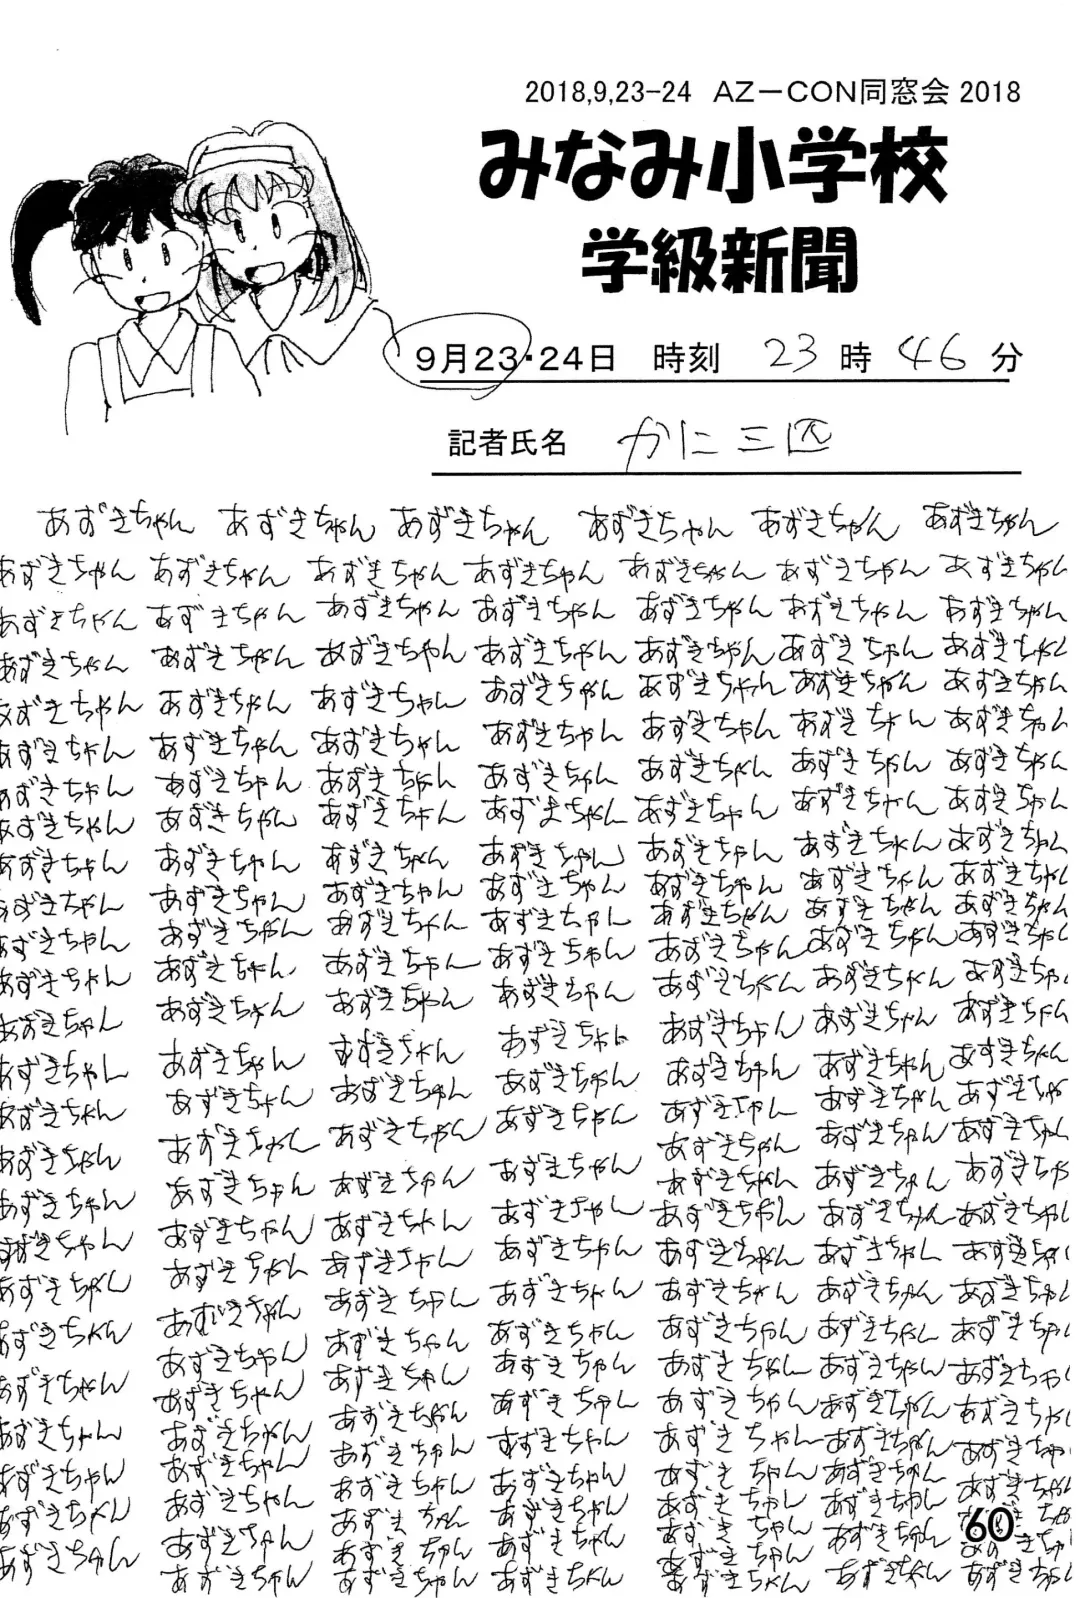 2018,9,23-24 AZ-CON同窓会 2018
みなみ小学校
学級新聞
9月23・24日 時刻 23時 46分
記者氏名 かに三匹
あずきちゃん あずきちゃん あずきちゃん あずきちゃん あずきちゃん あずきちゃん
あずきちゃん あずきちゃん あずきちゃん あずきちゃん あずきちゃん あずきちゃん あずきちゃん
あずきちゃん あずきちゃん あずきちゃん あずきちゃん あずきちゃん あずきちゃん あずきちゃん
あずきちゃん あずきちゃん あずきちゃん あずきちゃん あずきちゃん あずきちゃん あずきちゃん
あずきちゃん あずきちゃん あずきちゃん あずきちゃん あずきちゃん あずきちゃん あずきちゃん
あずきちゃん あずきちゃん あずきちゃん あずきちゃん あずきちゃん あずきちゃん あずきちゃん
あずきちゃん あずきちゃん あずきちゃん あずきちゃん あずきちゃん あずきちゃん あずきちゃん
あずきちゃん あずきちゃん あずきちゃん あずきちゃん あずきちゃん あずきちゃん あずきちゃん
あずきちゃん あずきちゃん あずきちゃん あずきちゃん あずきちゃん あずきちゃん あずきちゃん
あずきちゃん あずきちゃん あずきちゃん あずきちゃん あずきちゃん あずきちゃん あずきちゃん
あずきちゃん あずきちゃん あずきちゃん あずきちゃん あずきちゃん あずきちゃん あずきちゃん
あずきちゃん あずきちゃん あずきちゃん あずきちゃん あずきちゃん あずきちゃん あずきちゃん
あずきちゃん あずきちゃん あずきちゃん あずきちゃん あずきちゃん あずきちゃん あずきちゃん
あずきちゃん あずきちゃん あずきちゃん あずきちゃん あずきちゃん あずきちゃん あずきちゃん
あずきちゃん あずきちゃん あずきちゃん あずきちゃん あずきちゃん あずきちゃん あずきちゃん
あずきちゃん あずきちゃん あずきちゃん あずきちゃん あずきちゃん あずきちゃん あずきちゃん
あずきちゃん あずきちゃん あずきちゃん あずきちゃん あずきちゃん あずきちゃん あずきちゃん
あずきちゃん あずきちゃん あずきちゃん あずきちゃん あずきちゃん あずきちゃん あずきちゃん
あずきちゃん あずきちゃん あずきちゃん あずきちゃん あずきちゃん あずきちゃん あずきちゃん
あずきちゃん あずきちゃん あずきちゃん あずきちゃん あずきちゃん あずきちゃん あずきちゃん
あずきちゃん あずきちゃん あずきちゃん あずきちゃん あずきちゃん あずきちゃん あずきちゃん
あずきちゃん あずきちゃん あずきちゃん あずきちゃん あずきちゃん あずきちゃん あずきちゃん
あずきちゃん あずきちゃん あずきちゃん あずきちゃん あずきちゃん あずきちゃん あずきちゃん
あずきちゃん あずきちゃん あずきちゃん あずきちゃん あずきちゃん あずきちゃん あずきちゃん
あずきちゃん あずきちゃん あずきちゃん あずきちゃん あずきちゃん あずきちゃん あずきちゃん
あずきちゃん あずきちゃん あずきちゃん あずきちゃん あずきちゃん あずきちゃん
あずきちゃん あずきちゃん あずきちゃん あずきちゃん あずきちゃん あずきちゃん
60